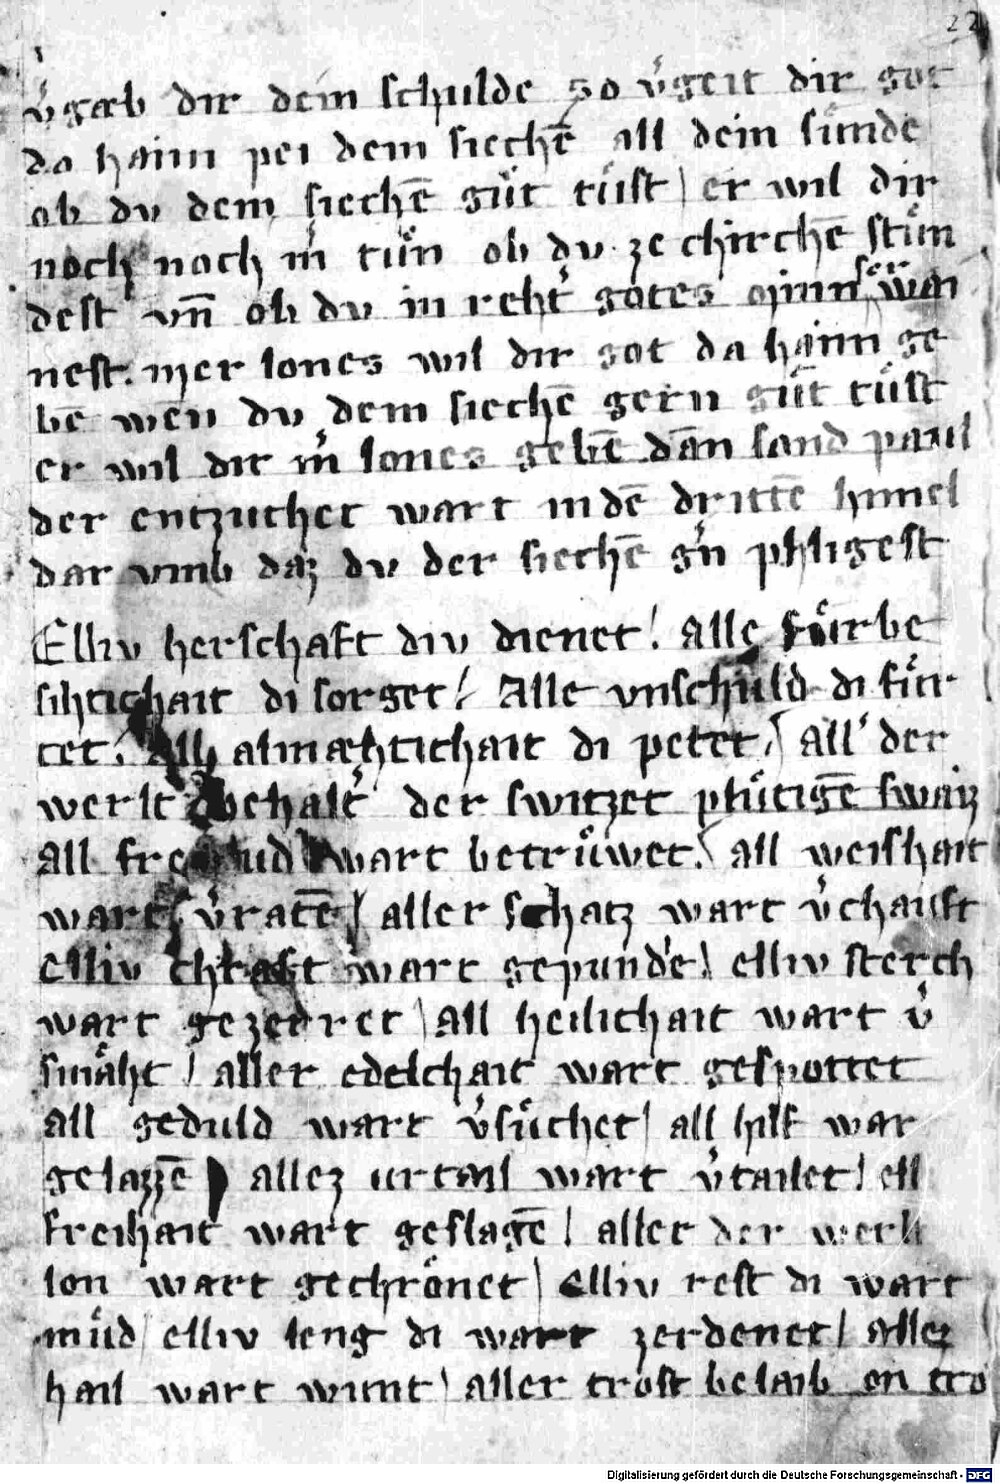 22
v̉gæb dir dein schulde so v̉geit dir got
da haim pei dem siechē all dein sünde
ob du dem siechē gůt tůst / er wil dir
noch noch m̉ tůn ob du ze chirchē stůn
dest vn̄ ob du in reht̉ gotes minn
nest. mer lones wil dir got da haim ge
bē wen du dem siechē gern gůt tůst
er wil dir m̉ lones gebē dān sand paul
der entzucket wart in dē drittē himel
dar vmb daz du der siechē g̉n phligest
Elliv herschaft div dienet / alle fůrbe
sihtichait di sorget / Alle vnschuld di fůr
tet / All almæhtichait di petet / all der
werlt behalt̉ der switzet plůtigē swaiz
all fre wart betrůwet / all weishait
wart v̉ratē / aller schatz wart v̉chauft
elliv chraft wart gepundē / elliv sterch
wart gezerret / all heilichait wart v̉
småht / aller edelchait wart gespottet
all geduld wart v̉sůchet / all hilf war
gelazzē / allez urtail wart v̉tailet / ell
freihait wart geslagē / aller der werlt
lon wart gechrönet / elliv rest di wart
můd / elliv leng di wart zerdenet / allez
hail wart wunt / aller trost belaib on tro
Digitalisierung gefördert durch die Deutsche Forschungsgemeinschaft - DFG